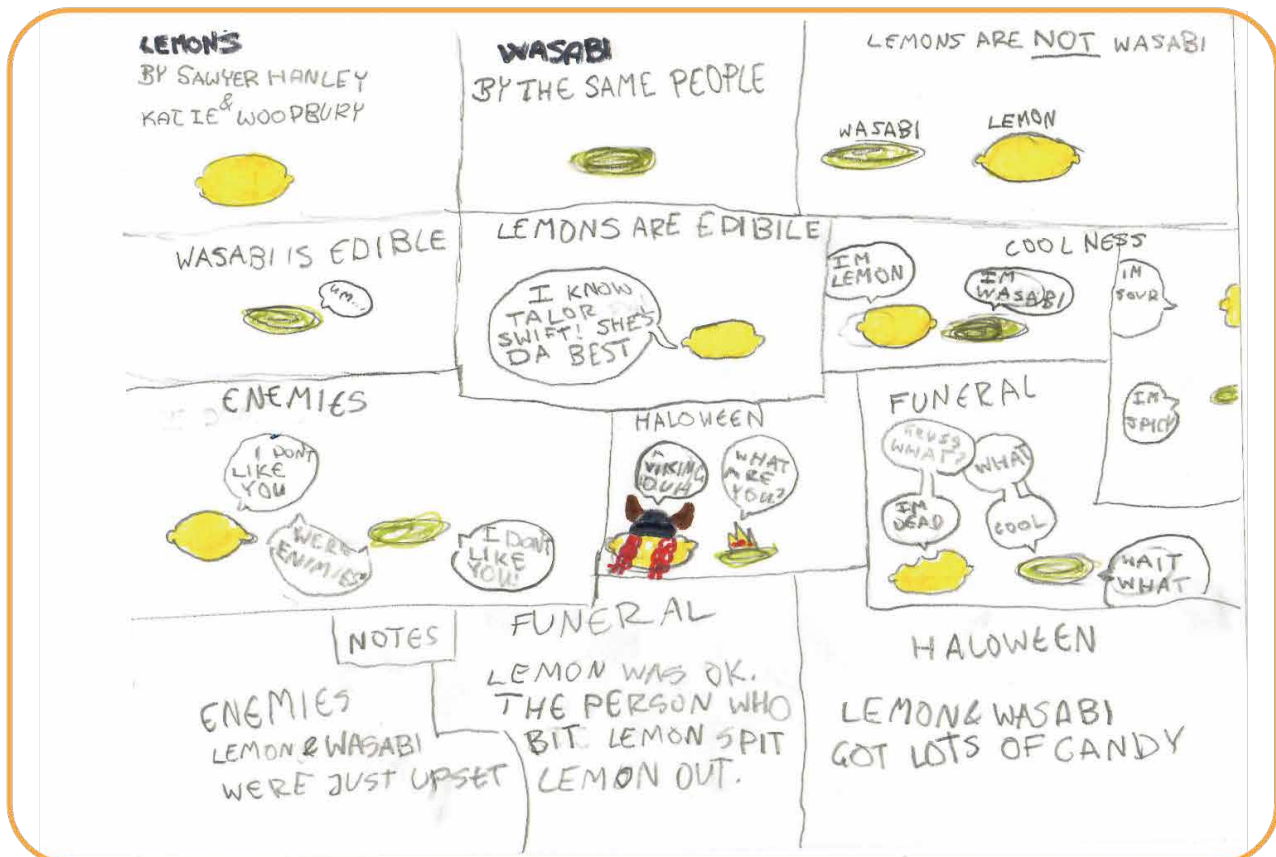 LEMONS
BY SAWYER HANLEY
&
KATIE WOODBURY
WASABI
BY THE SAME PEOPLE
LEMONS ARE NOT WASABI
WASABI
LEMON
WASABI IS EDIBLE
UM...
LEMONS ARE EDIBILE
I KNOW
TALOR
SWIFT! SHE'S
DA BEST
COOLNESS
IM
LEMON
I'M
WASABI
IM
SOUR
I'M
SPICY
ENEMIES
I DONT
LIKE
YOU
WERE
ENIMIES
I DONT
LIKE
YOU!
HALOWEEN
A
VIKING
DUH
WHAT
ARE
YOU?
FUNERAL
GUESS
WHAT?
WHAT
I'M
DEAD
COOL
WAIT
WHAT
NOTES
ENEMIES
LEMON & WASABI
WERE JUST UPSET
FUNERAL
LEMON WAS OK.
THE PERSON WHO
BIT LEMON SPIT
LEMON OUT.
HALOWEEN
LEMON & WASABI
GOT LOTS OF CANDY